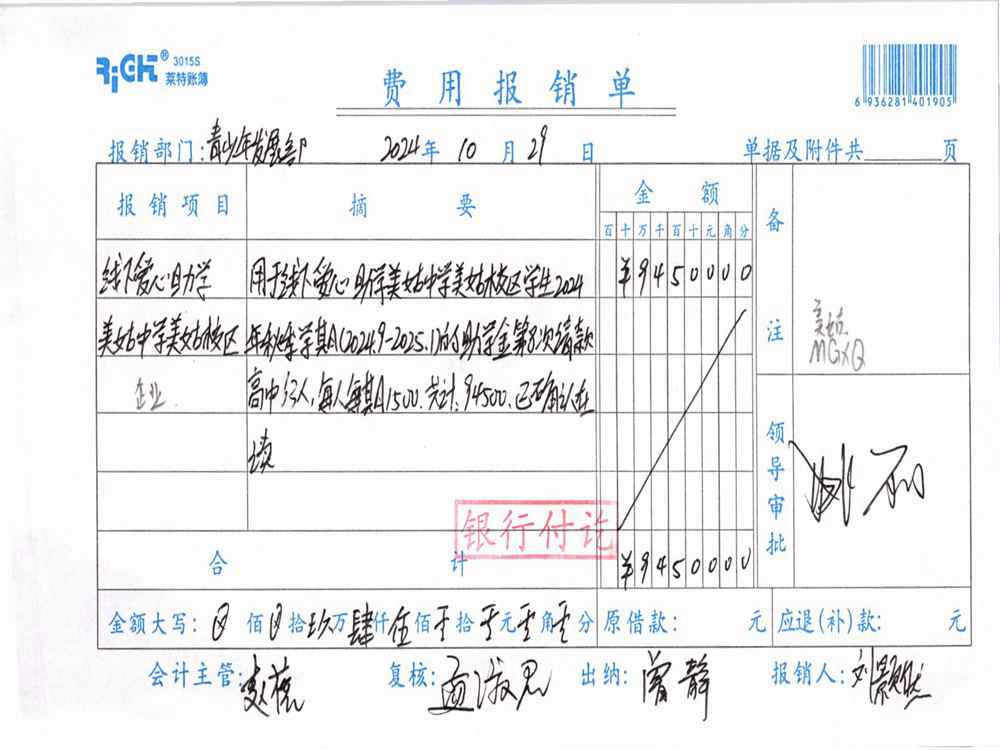 RiGHT® 3015S
莱特账簿
费用报销单
6 936281 401905
报销部门:青少年发展部 2024年10月29日 单据及附件共 页
报销项目 摘要 金额 备注
百十万千百十元角分
线下爱心助学 用于线下爱心助学美姑中学美姑校区学生2024 ¥9450000
美姑中学美姑校区 年秋季学期(2024.9-2025.1)的助学金第8次请款
企业 高中63人,每人每期1500.共计:94500.已确认在
读
美姑
MGXQ
领导审批
银行付讫
合计 ¥9450000
金额大写: 佰 拾玖万肆仟伍佰 拾 元 角 分 原借款: 元 应退(补)款: 元
会计主管: 复核: 孟淑思 出纳: 曾静 报销人: 刘